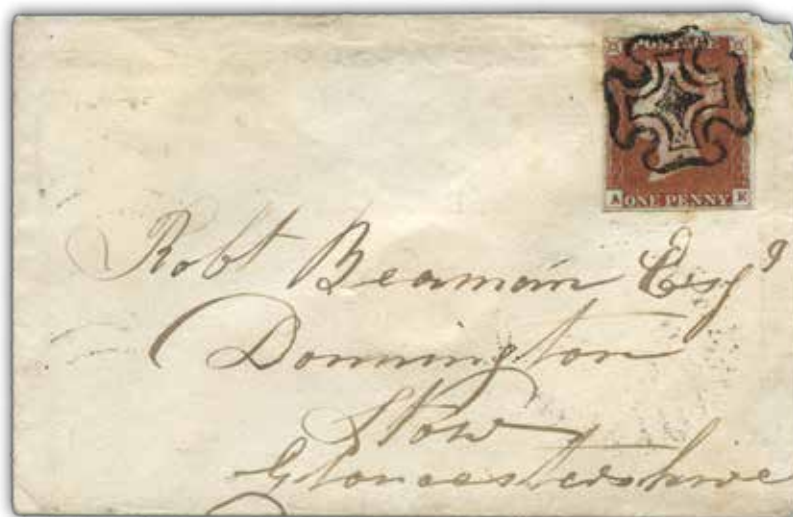 POSTAGE
A ONE PENNY K
Robt Beaman Esqr
Donnington
Stow
Gloucestershire